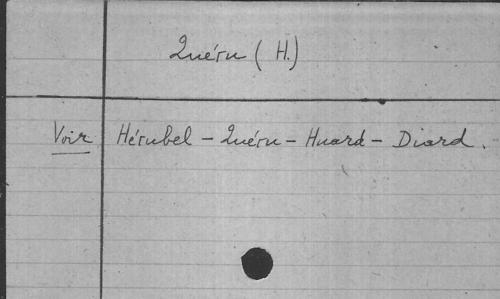 Quéru (H.)
Voir Hérubel - Quéru - Huard - Diard.